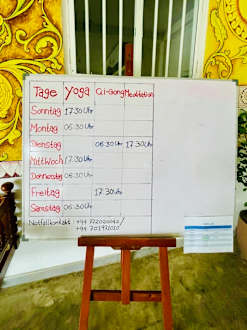 Tage Yoga Qi-Gong Meditation
Sonntag 17.30 Uhr
Montag 06.30 Uhr
Dienstag 06.30 Uhr 17.30 Uhr
Mittwoch 17.30 Uhr
Donnerstag 06.30 Uhr
Freitag 17.30 Uhr
Samstag 06.30 Uhr
Notfallkontakt :